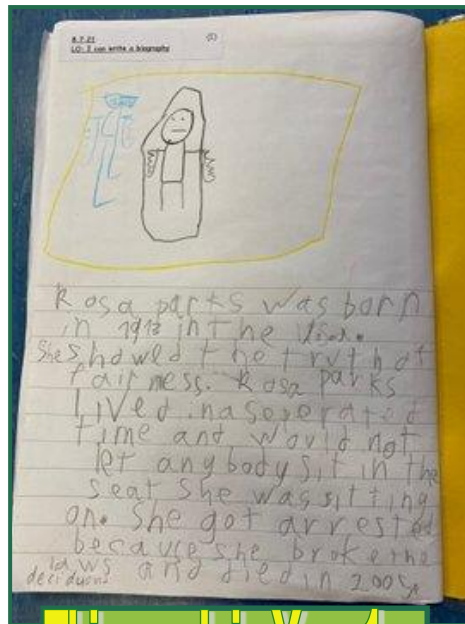 8.7.21
LO: I can write a biography
Rosa parts was born
in 1913 in the
She showed the truth of
fairness. Rosa parks
lived in a seperated
time and would not
let anybody sit in the
seat she was sitting
on. She got arrested
because she broke the
laws and died in 2005